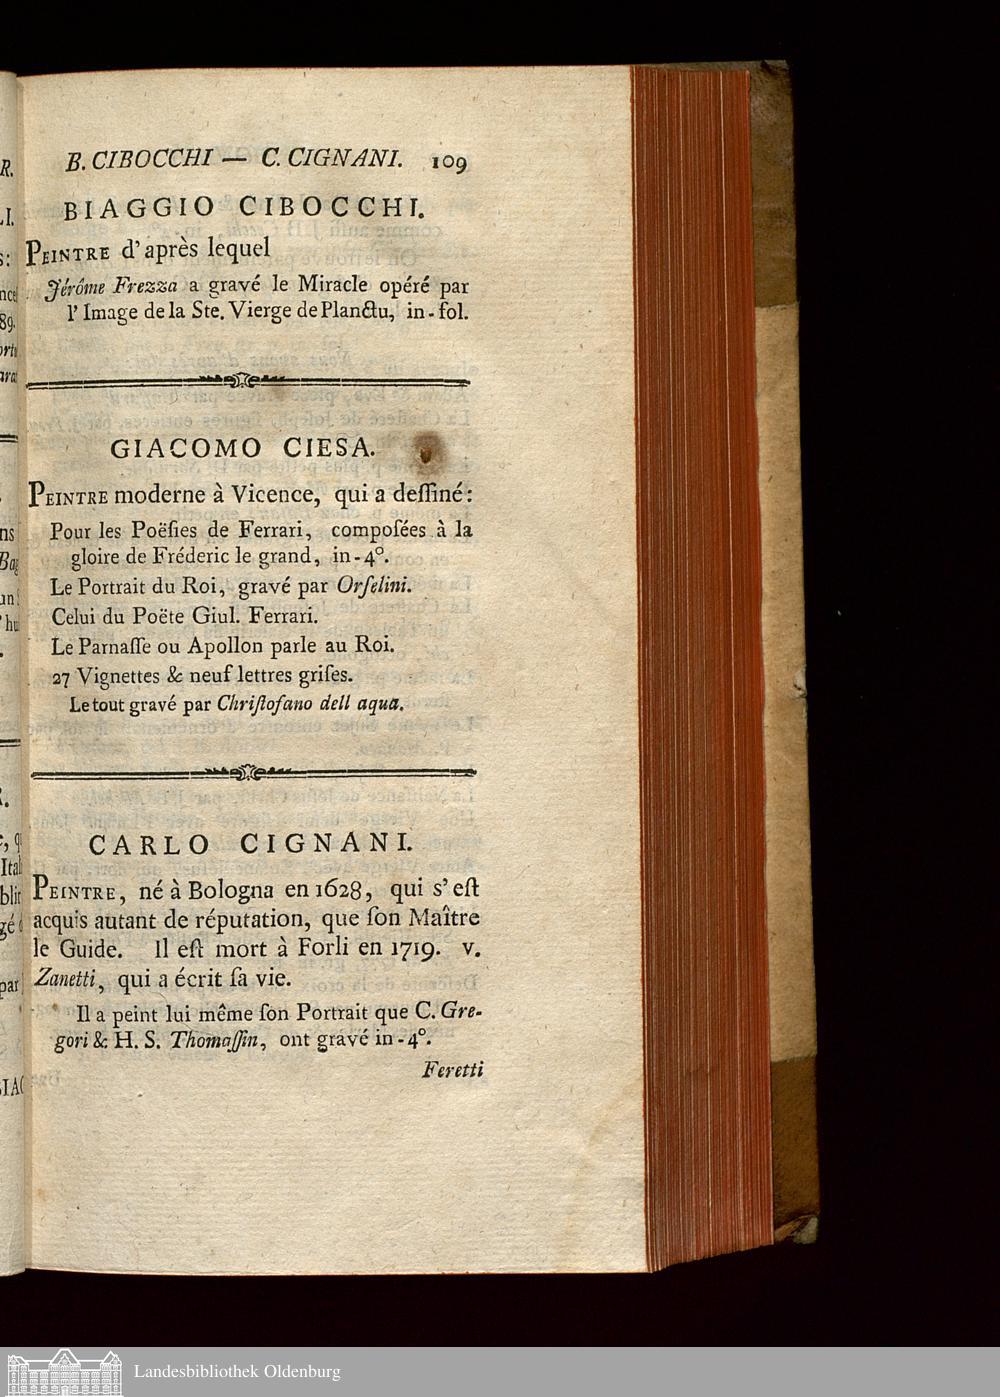 B. CIBOCCHI — C. CIGNANI. 109
BIAGGIO CIBOCCHI.
PEINTRE d'après lequel
Jérôme Frezza a gravé le Miracle opéré par
l'Image de la Ste. Vierge de Planctu, in-fol.
GIACOMO CIESA.
PEINTRE moderne à Vicence, qui a deſſiné:
Pour les Poëſies de Ferrari, compoſées à la
gloire de Fréderic le grand, in-4°.
Le Portrait du Roi, gravé par Orſelini.
Celui du Poëte Giul. Ferrari.
Le Parnaſſe ou Apollon parle au Roi.
27 Vignettes & neuf lettres griſes.
Le tout gravé par Chriſtofano dell aqua.
CARLO CIGNANI.
PEINTRE, né à Bologna en 1628, qui s'eſt
acquis autant de réputation, que ſon Maître
le Guide. Il eſt mort à Forli en 1719. v.
Zanetti, qui a écrit ſa vie.
Il a peint lui même ſon Portrait que C. Gre-
gori & H. S. Thomaſſin, ont gravé in-4°.
Feretti
Landesbibliothek Oldenburg